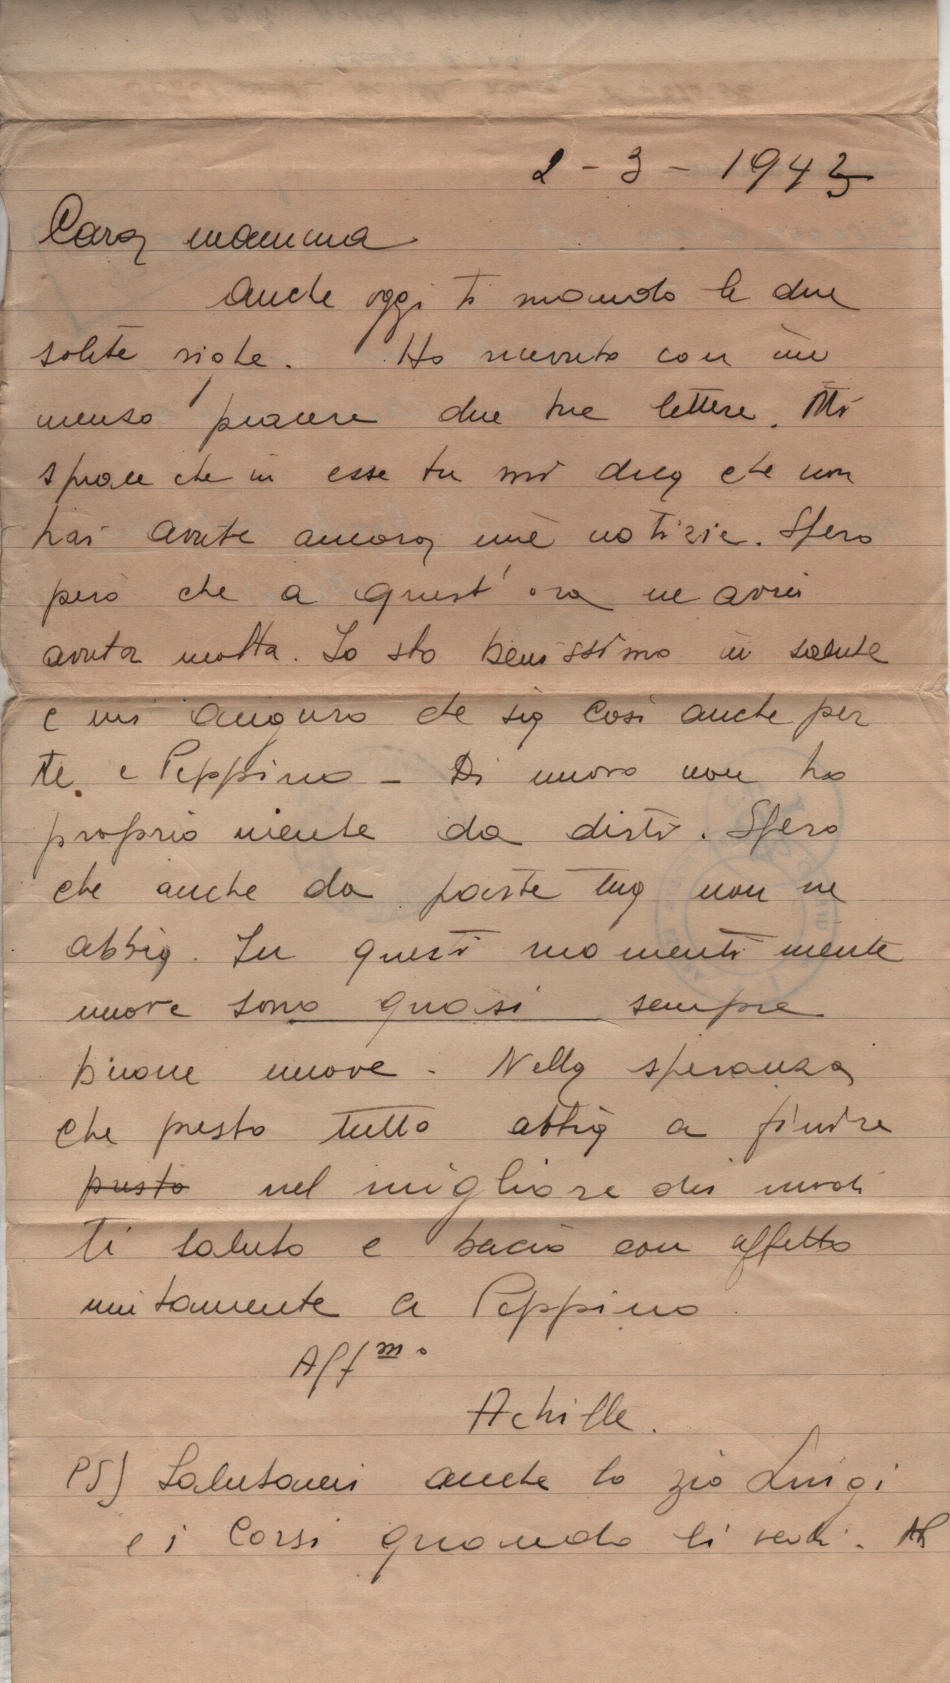 2 - 3 - 1943
Cara mamma
Anche oggi ti mando le due
solite righe. Ho ricevuto con im
menso piacere due tue lettere. Mi
spiace che in esse tu mi dica che non
hai avute ancora mie notizie. Spero
però che a quest'ora ne avrai
avuta molta. Io sto benissimo in salute
e mi auguro che sia così anche per
te e Peppino - Di nuovo non ho
proprio niente da dirti. Spero
che anche da parte tua non ne
abbia. In questi momenti niente
nuove sono quasi sempre
buone nuove. Nella speranza
che presto tutto abbia a finire
presto nel migliore dei modi
ti saluto e bacio con affetto
unitamente a Peppino.
Aff.mo
Achille.
PS) Salutami anche lo zio Luigi
e i Corsi quando li vedi.